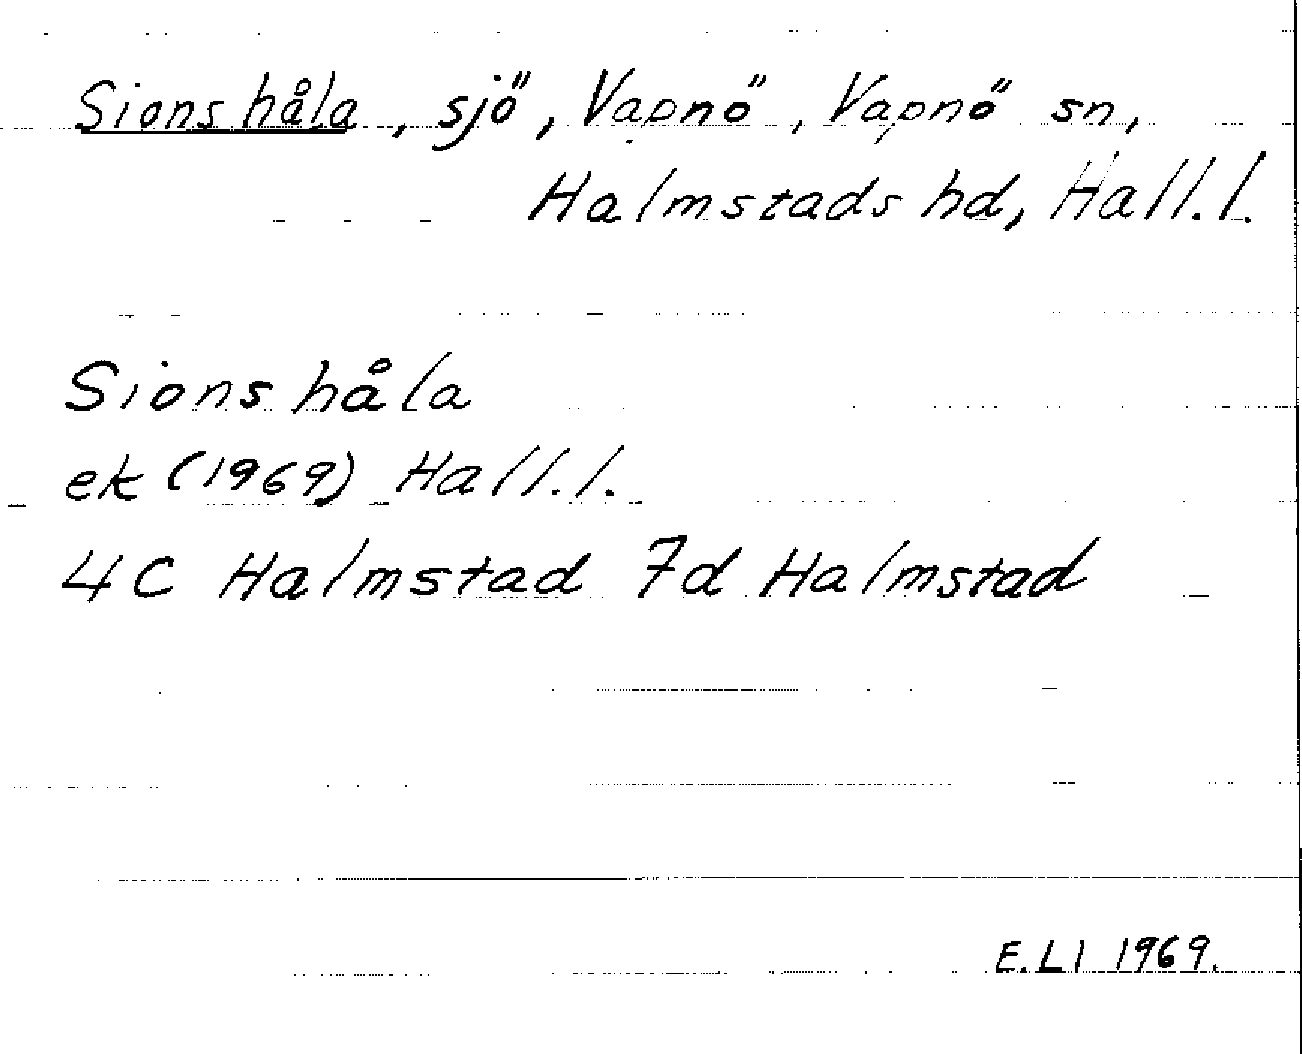 Sions håla, sjö, Vapnö, Vapnö sn,
Halmstads hd, Hall.l.
Sions håla
ek (1969) Hall.l.
4C Halmstad 7d Halmstad
E.Ll 1969.